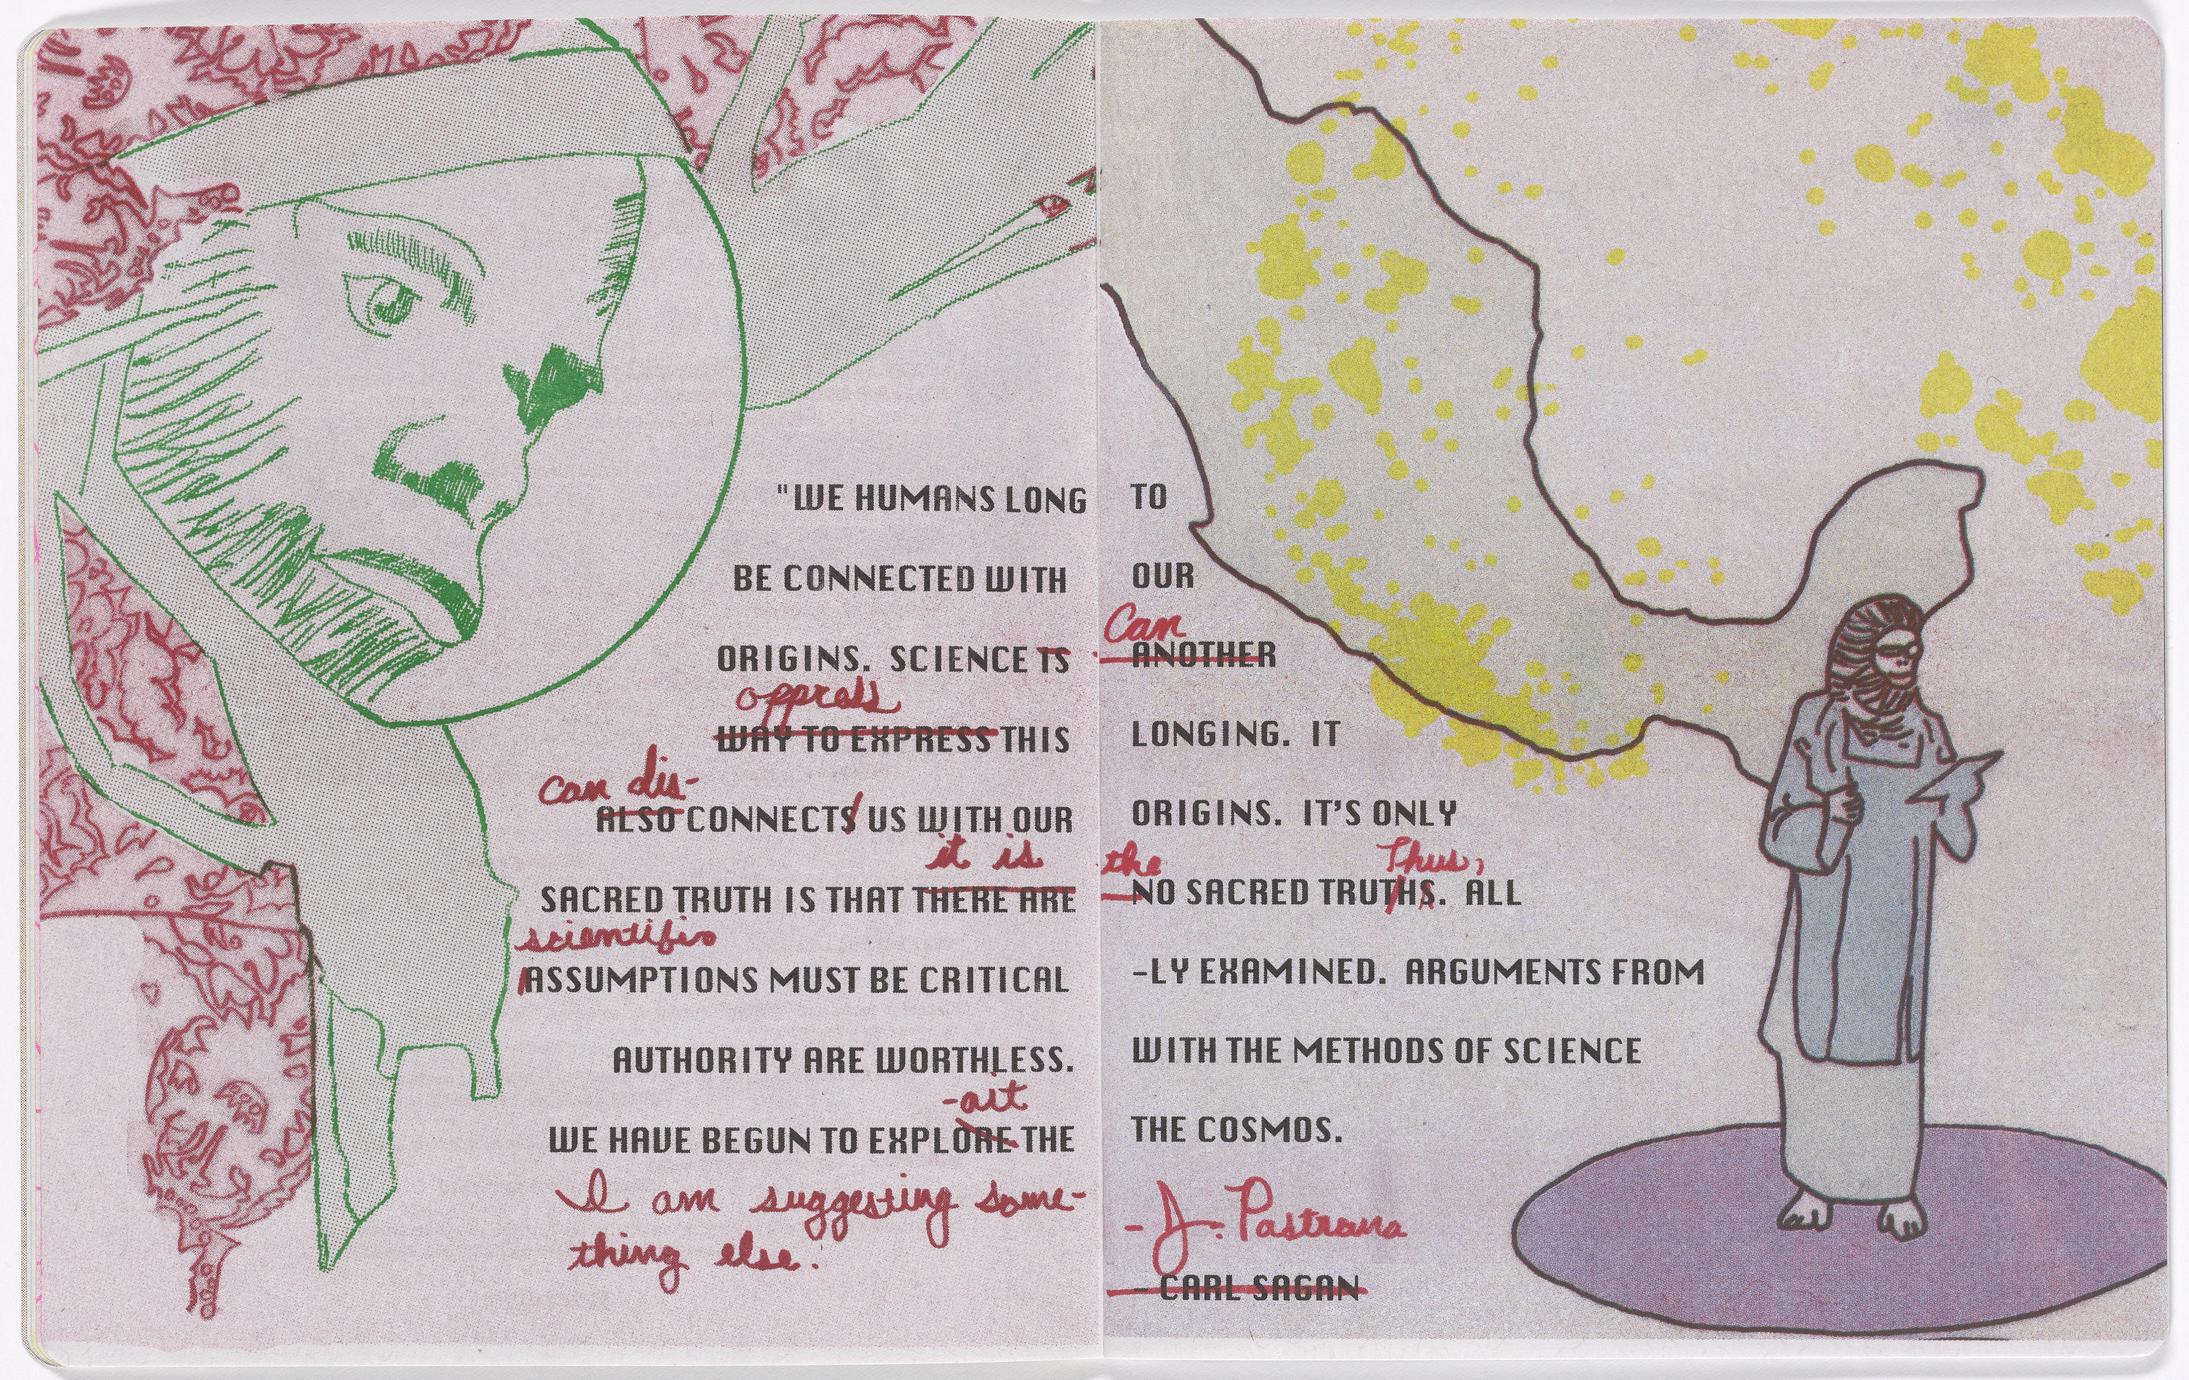 "WE HUMANS LONG TO
BE CONNECTED WITH OUR
Can
ORIGINS. SCIENCE IS ANOTHER
oppress
WAY TO EXPRESS THIS LONGING. IT
can dis-
ALSO CONNECTS US WITH OUR ORIGINS. IT'S ONLY
it is the Thus,
SACRED TRUTH IS THAT THERE ARE NO SACRED TRUTHS. ALL
scientific
ASSUMPTIONS MUST BE CRITICAL -LY EXAMINED. ARGUMENTS FROM
AUTHORITY ARE WORTHLESS. WITH THE METHODS OF SCIENCE
-ait
WE HAVE BEGUN TO EXPLORE THE THE COSMOS.
I am suggesting some-
thing else.
- J. Pastrana
- CARL SAGAN